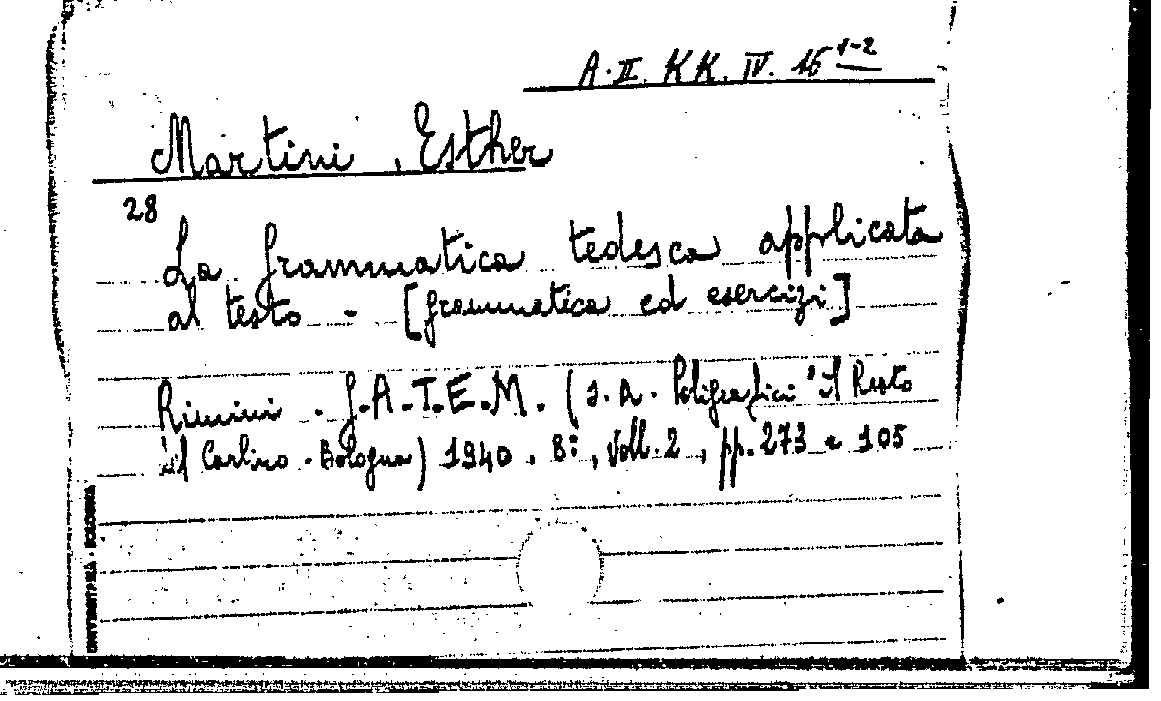 A·II. KK. IV. 16 1-2
Martini, Esther
28
La grammatica tedesca applicata
al testo - [grammatica ed esercizi]
Rimini - G.A.T.E.M. (S.A. Poligrafici "il Resto
del Carlino - Bologna) 1940. 8º, Voll. 2, pp. 273 e 105
UNIVERSITARIA - BOLOGNA